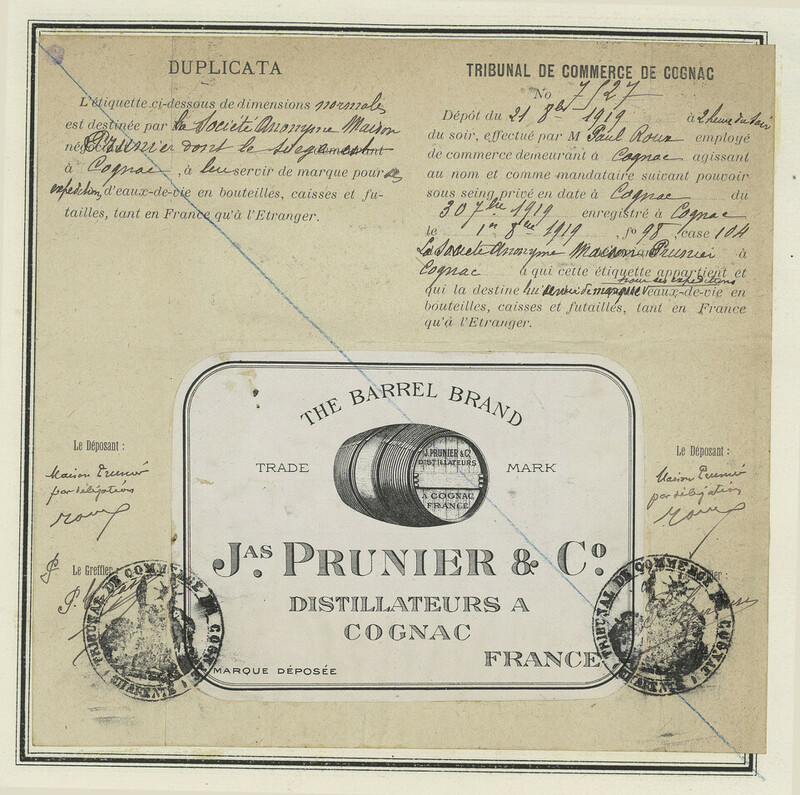 DUPLICATA
L'étiquette ci-dessous de dimensions normales
est destinée par la Société Anonyme Maison
Prunier dont le siège est
à Cognac, à leur servir de marque pour ses
expéditions d'eaux-de-vie en bouteilles, caisses et fu-
tailles, tant en France qu'à l'Etranger.
TRIBUNAL DE COMMERCE DE COGNAC
No 7527
Dépôt du 21 8bre 1919 à 2 heures du soir
du soir, effectué par M Paul Roux employé
de commerce demeurant à Cognac agissant
au nom et comme mandataire suivant pouvoir
sous seing privé en date à Cognac du
30 7bre 1919 enregistré à Cognac
le 1er 8bre 1919, fo 98, case 104
La Société Anonyme Maison Prunier à
Cognac à qui cette étiquette appartient et
pour ses expéditions
qui la destine à servir de marque eaux-de-vie en
bouteilles, caisses et futailles, tant en France
qu'à l'Etranger.
Le Déposant :
Maison Prunier
par délégation
Roux
Le Greffier :
Le Déposant :
Maison Prunier
par délégation
Roux
THE BARREL BRAND
TRADE MARK
J. PRUNIER & Co
DISTILLATEURS
A COGNAC
FRANCE
JAS. PRUNIER & Co.
DISTILLATEURS A
COGNAC
FRANCE
MARQUE DÉPOSÉE
TRIBUNAL DE COMMERCE DE COGNAC
CHARENTE
TRIBUNAL DE COMMERCE DE COGNAC
CHARENTE